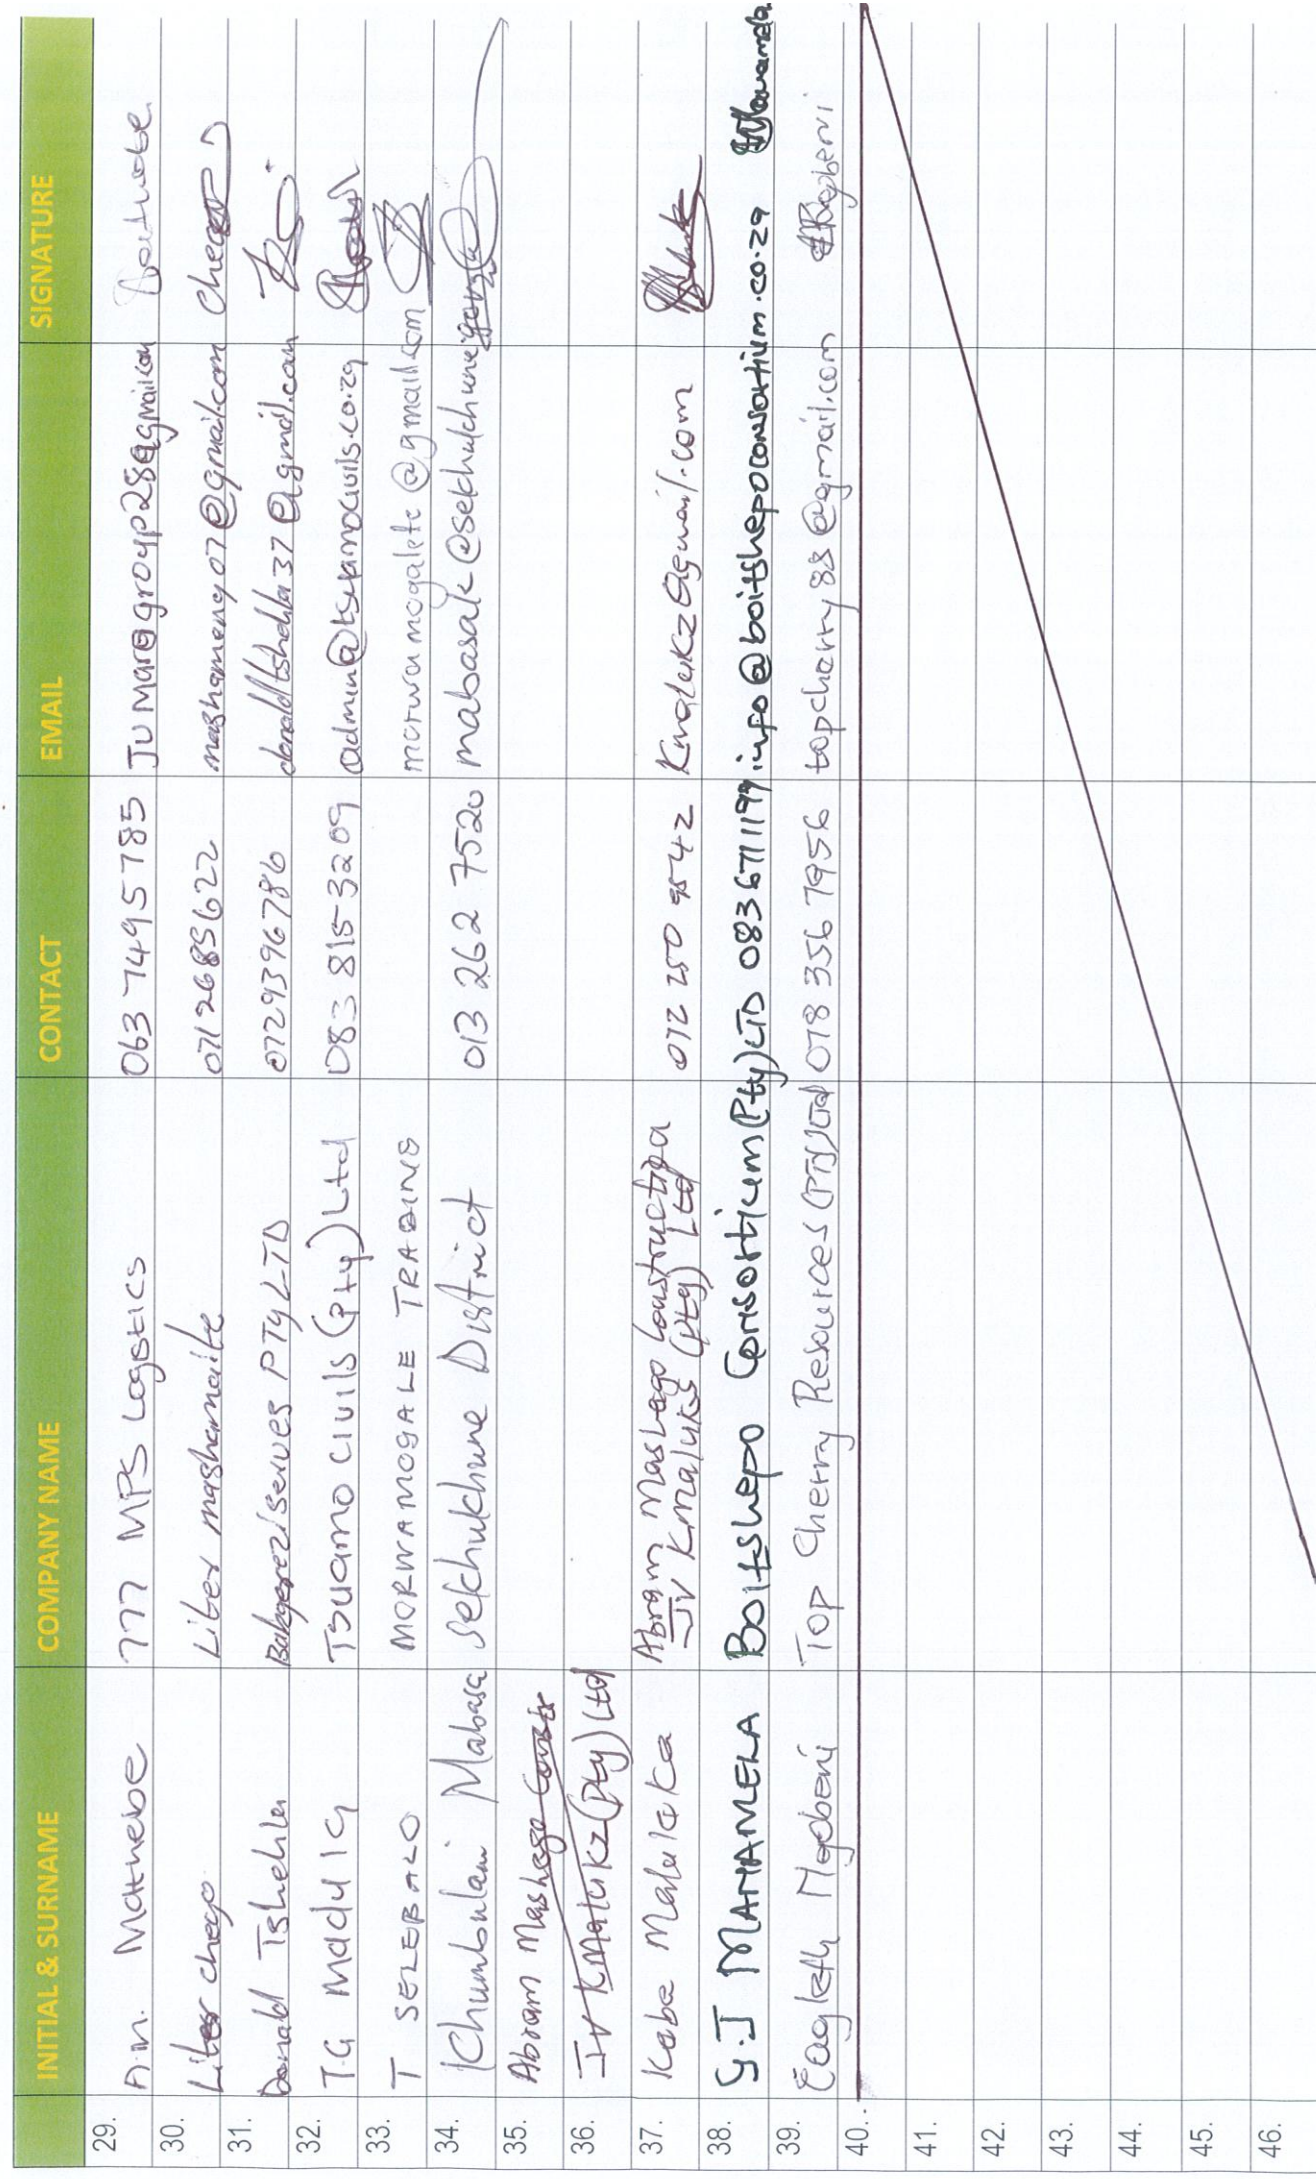 INITIAL & SURNAME COMPANY NAME CONTACT EMAIL SIGNATURE
29. A.N. Mathebe 777 MPS Logistics 063 7495785 Jumaregroup28@gmail.com
30. Liter cheap Liter mashamaite 0712685622 mashameny07@gmail.com Cheap
31. Donald Tshehla PTY LTD 0729396786 donaldtshehla37@gmail.com
32. T.G Madulg Tsuamo Civils (Pty) Ltd 083 815-3209 admin@tsuamocivils.co.za
33. T SELEBALO MORWAMOGALE TRADING morwamogale@gmail.com
34. Khumbulani Mabasa Sekhukhune District 013 262 7520 mabasak@sekhukhune.gov.za
35. Abram Mashego Constr
36. JV KMalukz (Pty) Ltd
37. Kabe Malalaka Abram Mashego Construction 072 250 9542 Kmalukz@gmail.com
JV Kmaluks (Pty) Ltd
38. G.J MAHAMELA Boitshepo Consortium (Pty) LTD 0836711199 info@boitshepoconsortium.co.za
39. Eagleth Mogoboni Top Cherry Resources (PTY) Ltd 078 356 7956 topcherry88@gmail.com
40.
41.
42.
43.
44.
45.
46.